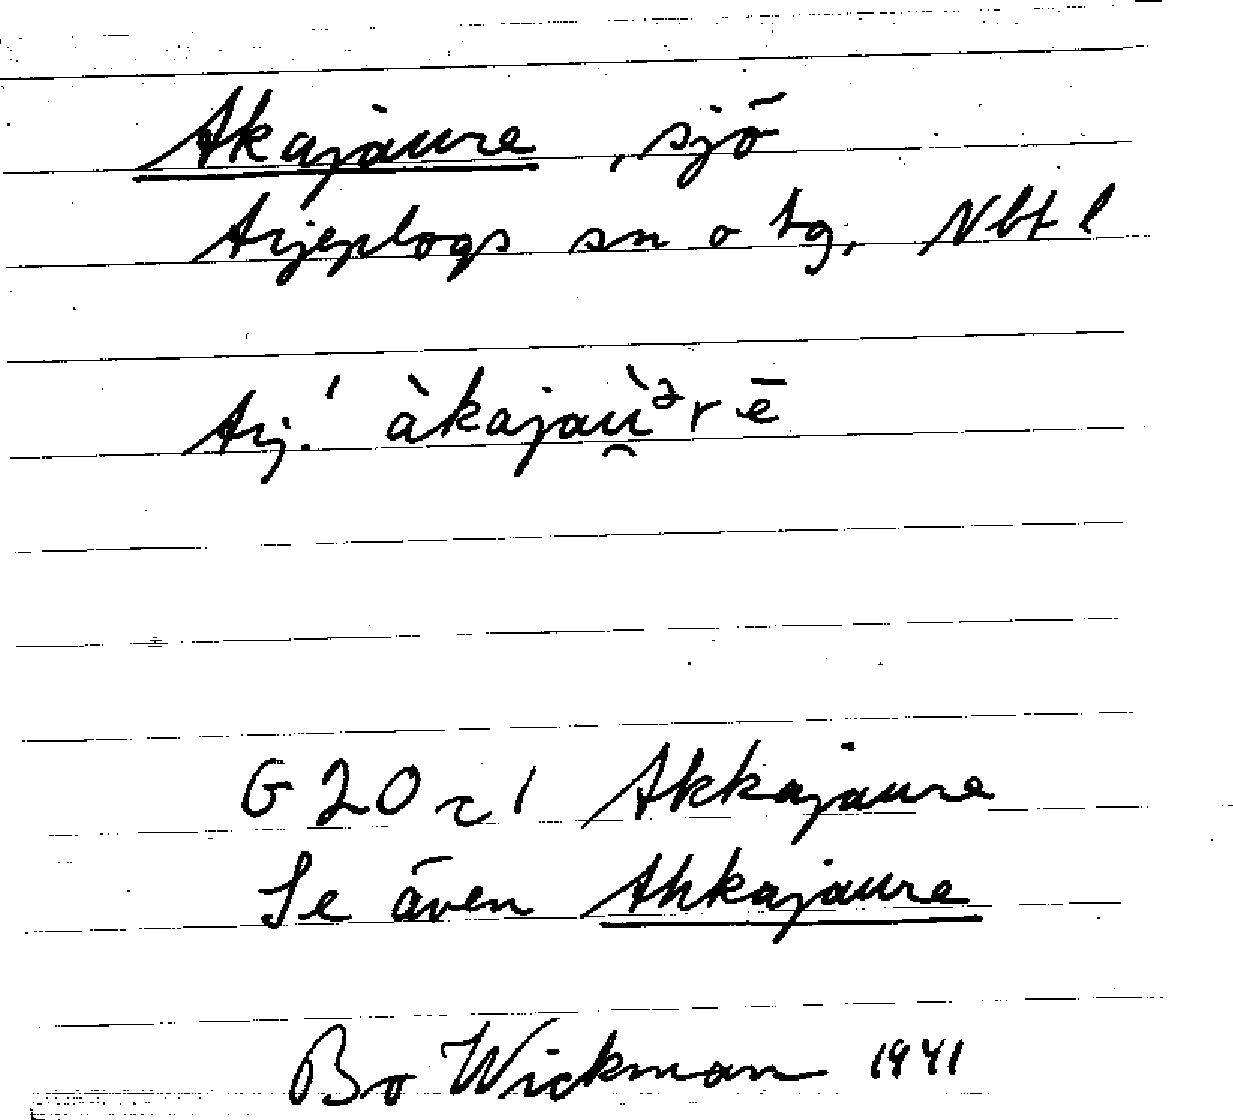 Akajaure, sjö
Arjeplogs sn o tg, Nbt l
Arj.' àkajaù̯ᵊrē
G20 c1 Akkajaure
Se även Ahkajaure
Bo Wickman 1941